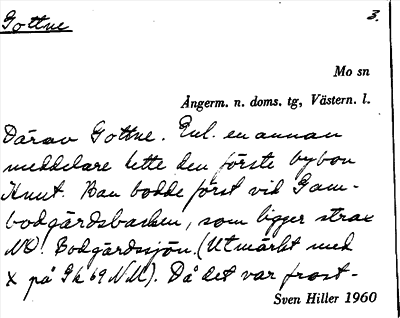 Gottne
3.
Mo sn
Ångerm. n. doms. tg, Västern. l.
Därav Gottne. Enl. en annan
meddelare hette den förste bybon
Knut. Han bodde först vid Gam-
bodgårdsbacken, som ligger strax
NO Bodgårdssjön. (Utmärkt med
X på Gk 69 NM). Då det var frost-
Sven Hiller 1960